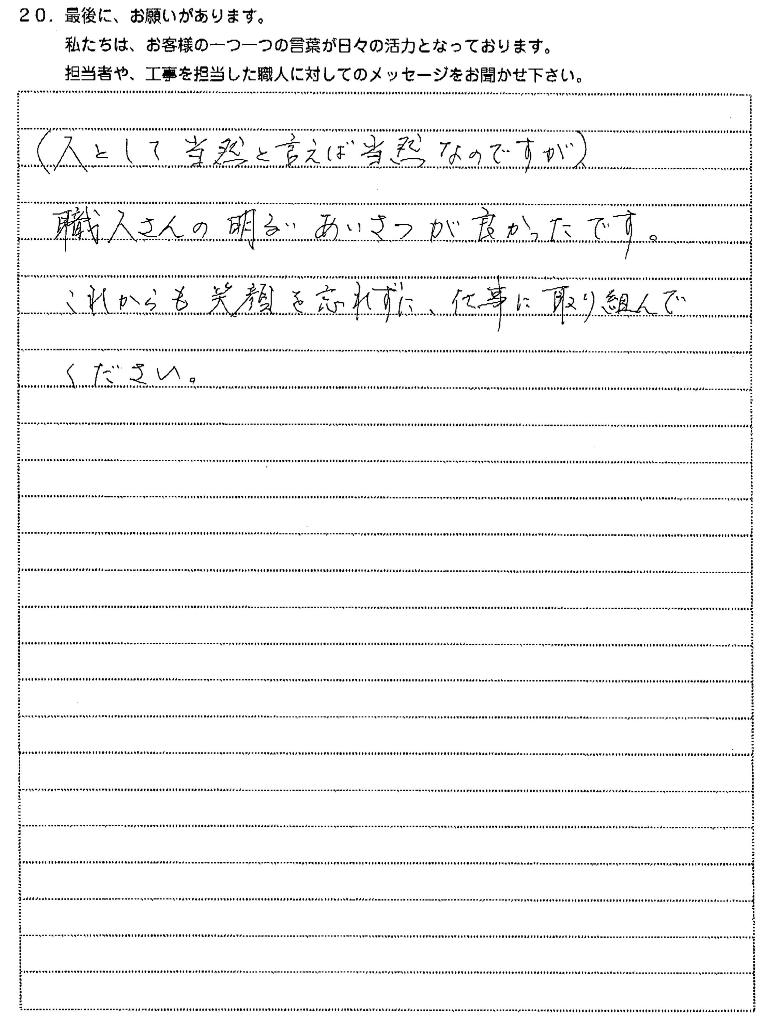 20. 最後に、お願いがあります。
私たちは、お客様の一つ一つの言葉が日々の活力となっております。
担当者や、工事を担当した職人に対してのメッセージをお聞かせ下さい。
(人として当然と言えば当然なのですが)
職人さんの明るいあいさつが良かったです。
これからも笑顔を忘れずに、仕事に取り組んで
ください。